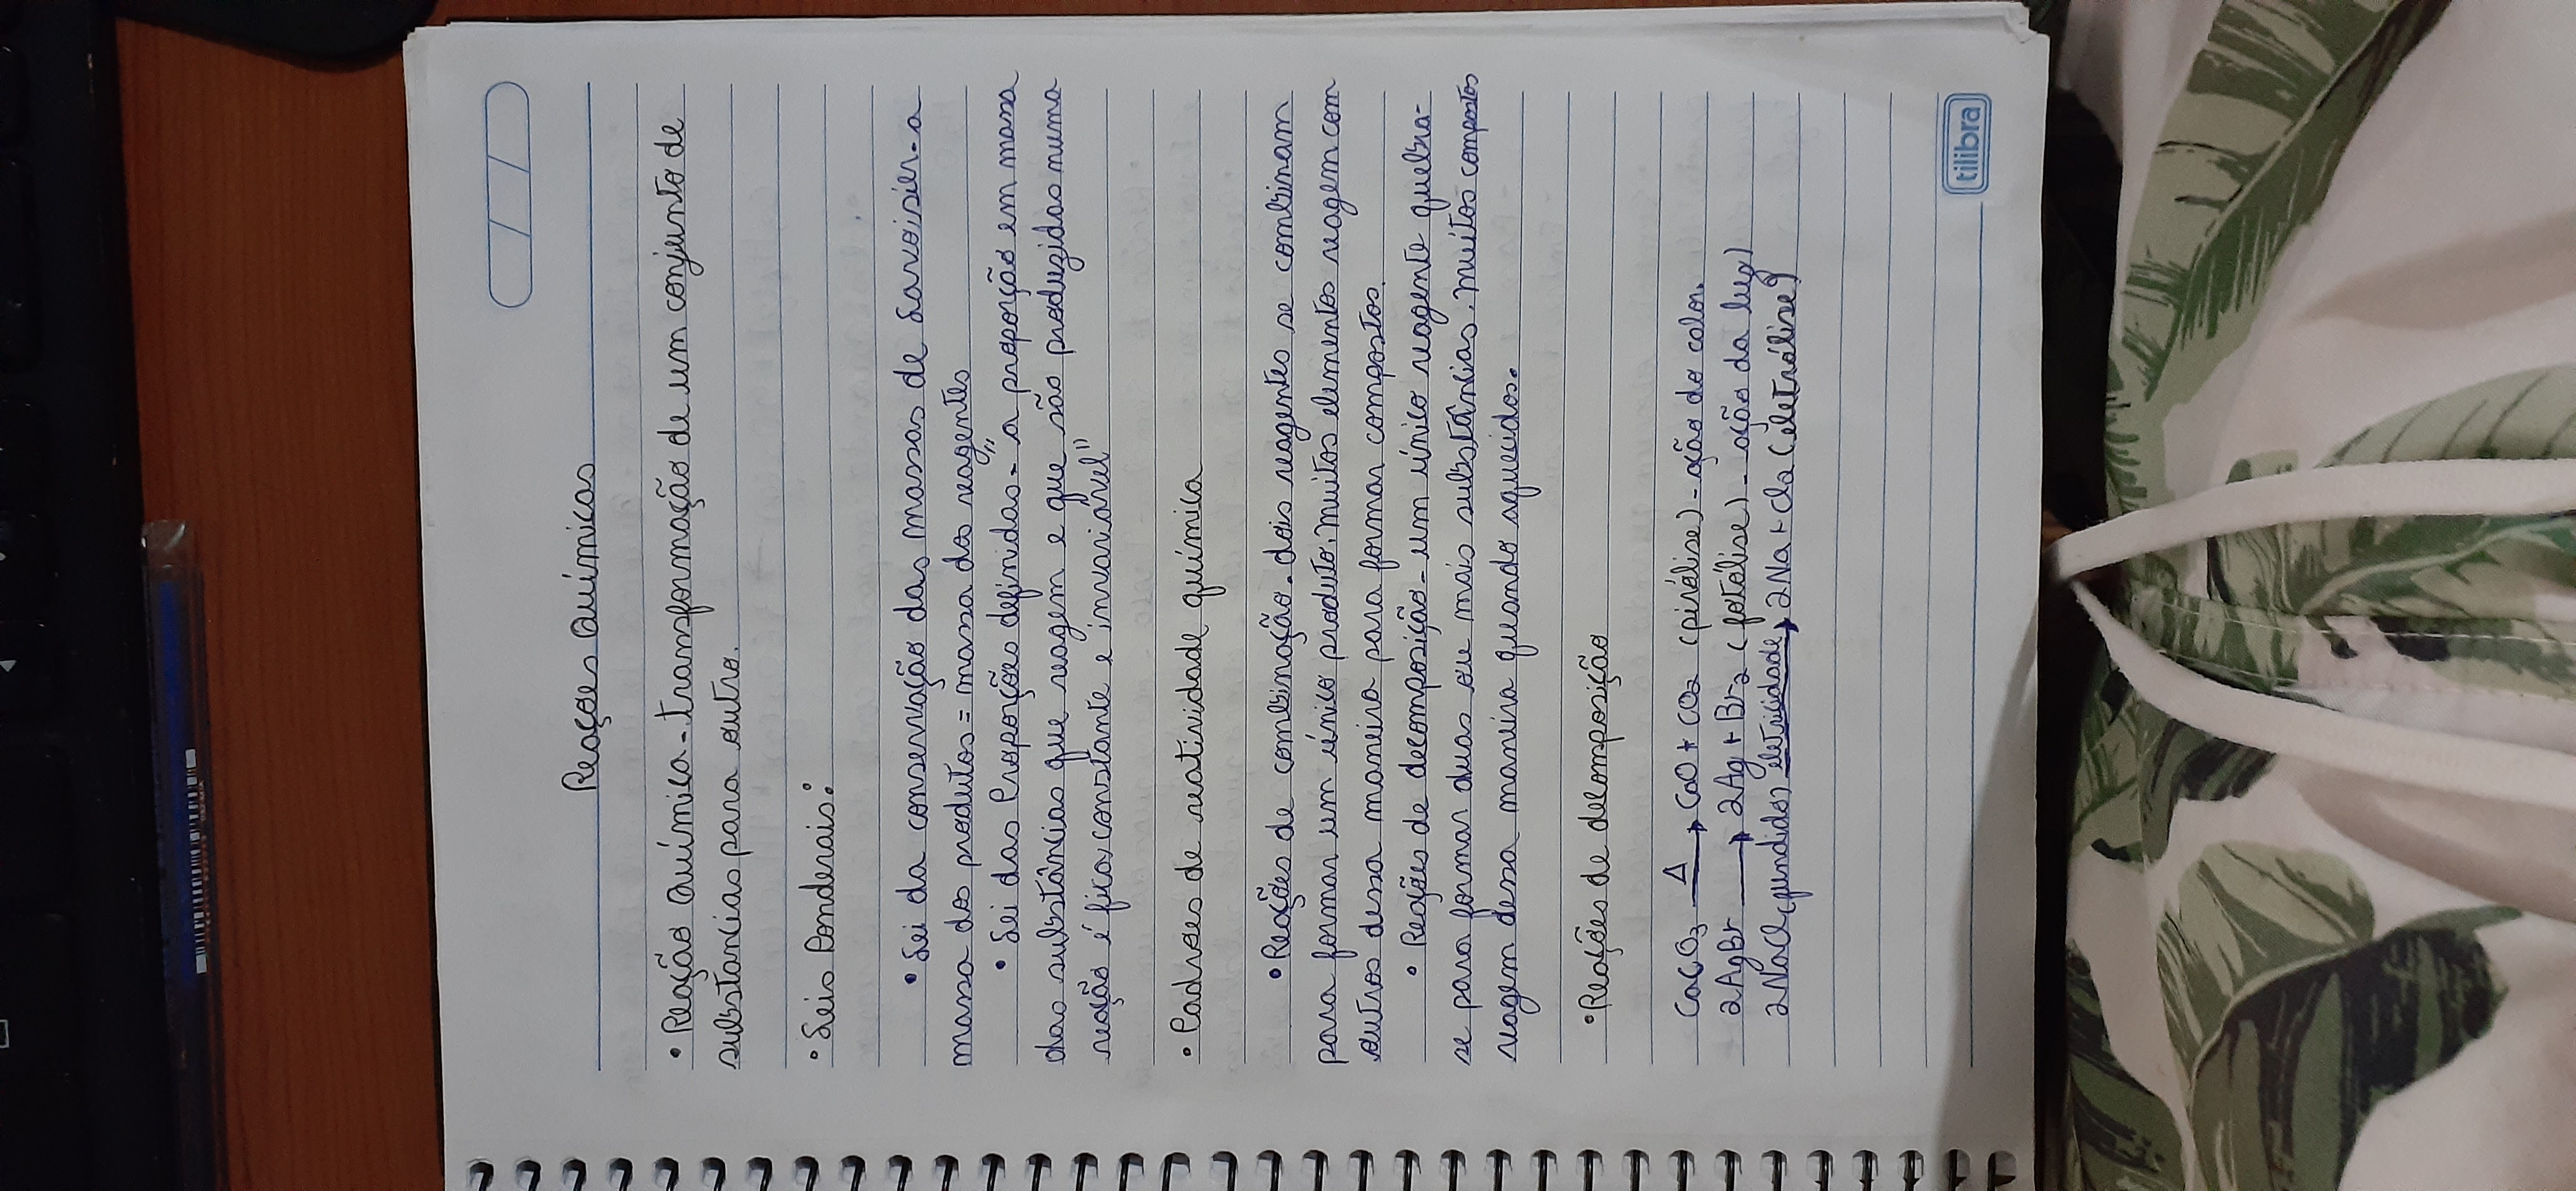 Reações Químicas
• Reação Química - transformação de um conjunto de
substancias para outro.
• Leis Ponderais:
• Lei da conservação das massas de Lavoisier - a
massa dos produtos = massa dos reagentes
• Lei das Proporções definidas - "a proporção em massa
das substâncias que reagem e que são produzidas numa
reação é fixa, constante e invariável"
• Padrões de reatividade química
• Reações de combinação - dois reagentes se combinam
para formar um único produto. Muitos elementos reagem com
outros dessa maneira para formar compostos.
• Reações de decomposição - um único reagente quebra-
se para formar duas ou mais substâncias. Muitos compostos
reagem dessa maneira quando aquecidos.
• Reações de decomposição
CaCO₃ —Δ→ CaO + CO₂ (pirólise) - ação do calor.
2AgBr → 2Ag + Br₂ (fotólise) - ação da luz)
2NaCl (fundido) —eletricidade→ 2Na + Cl₂ (eletrólise)
tilibra